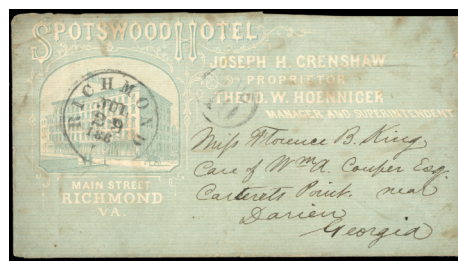 SPOTSWOOD HOTEL
JOSEPH H. CRENSHAW
PROPRIETOR
THEO. W. HOENNIGER
MANAGER AND SUPERINTENDENT
RICHMOND
JUL
29
186
MAIN STREET
RICHMOND
VA.
Miss Florence B. King
Care of Wm A. Couper Esq.
Carterets Point. near
Darien
Georgia